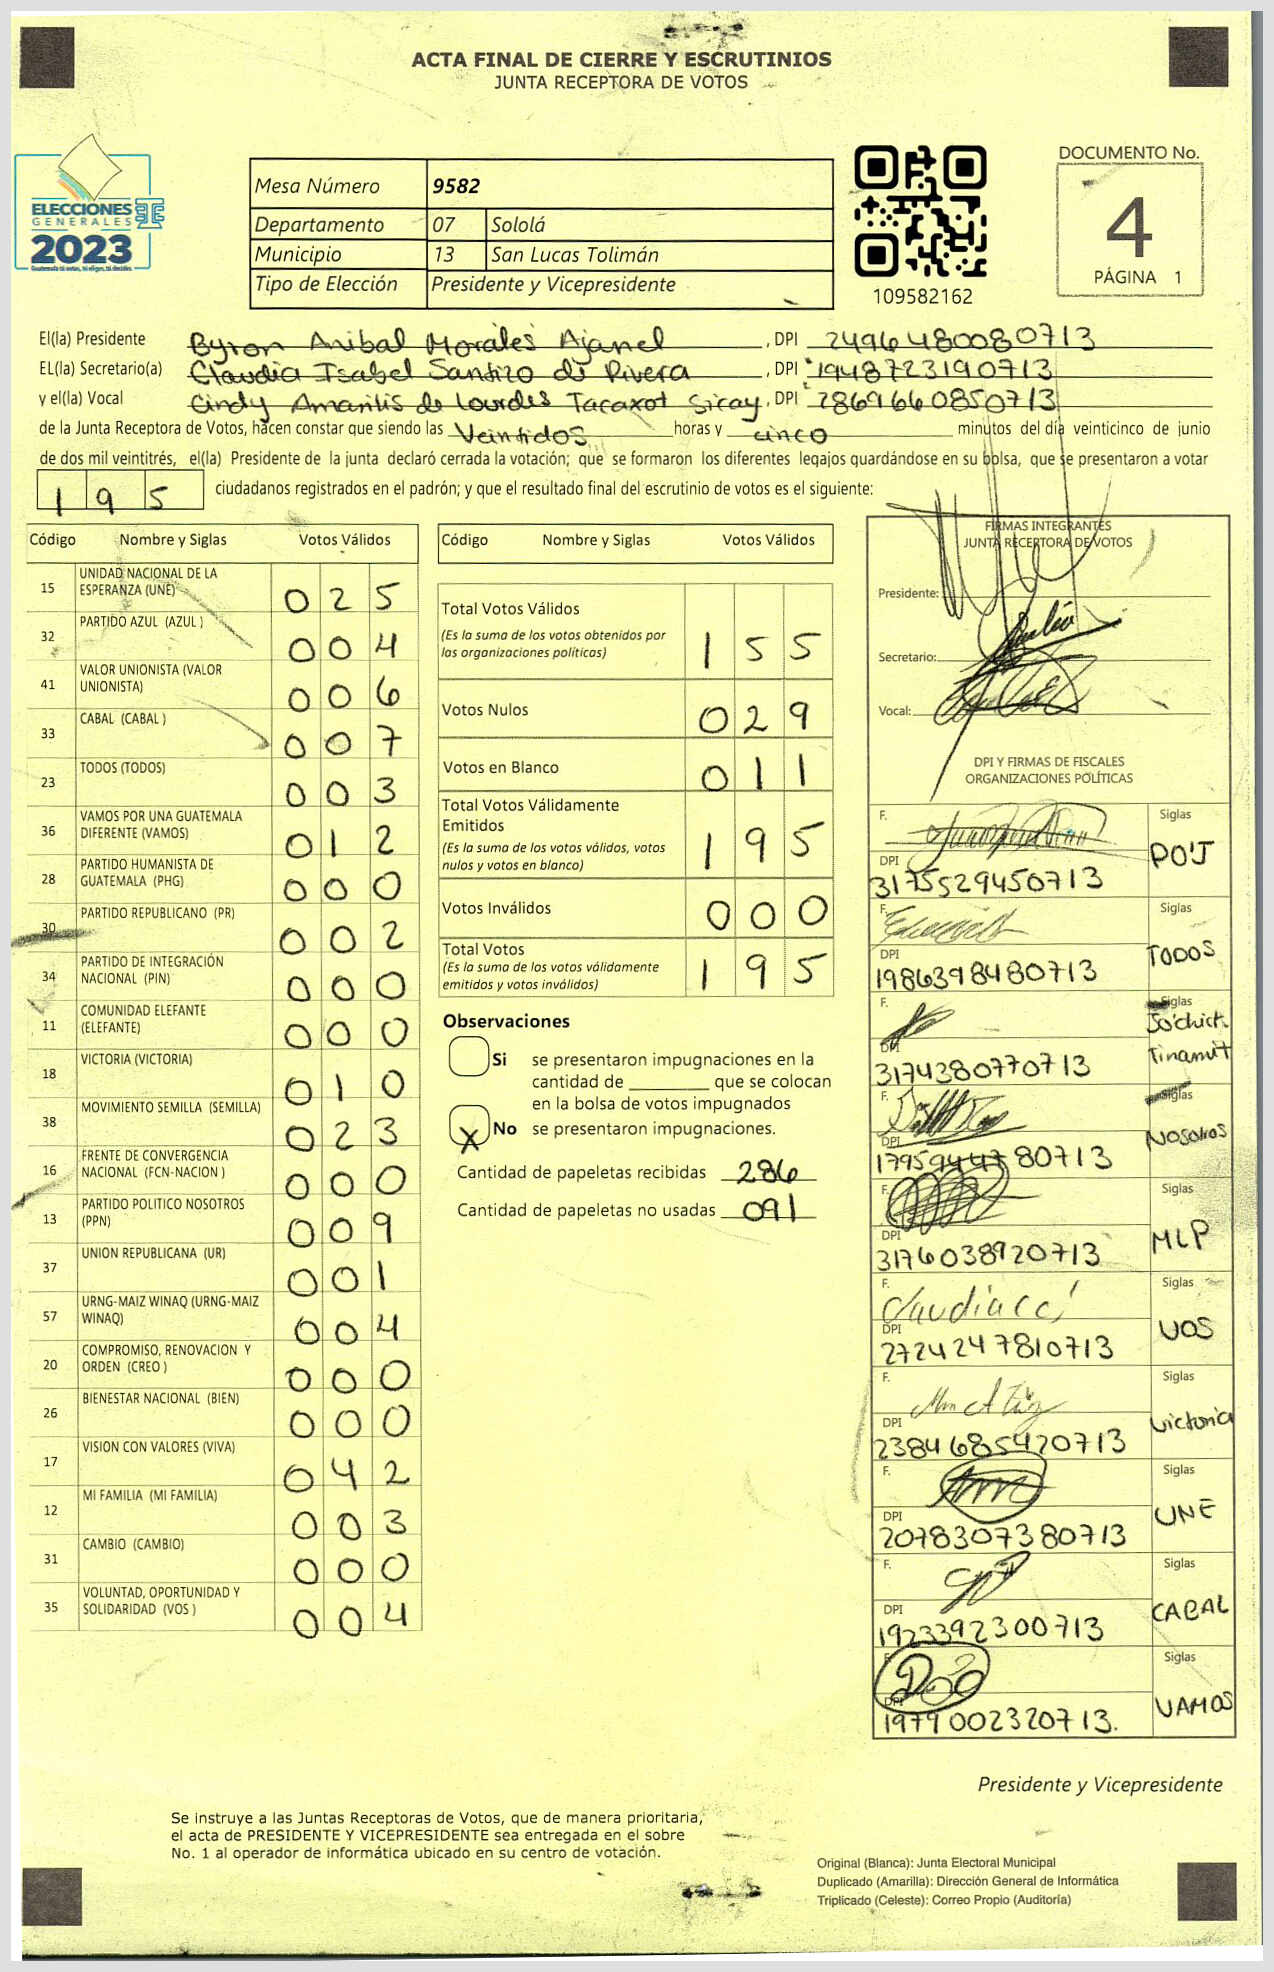 ACTA FINAL DE CIERRE Y ESCRUTINIOS
JUNTA RECEPTORA DE VOTOS
ELECCIONES
GENERALES
2023
Mesa Número 9582
Departamento 07 Sololá
Municipio 13 San Lucas Tolimán
Tipo de Elección Presidente y Vicepresidente
109582162
DOCUMENTO No.
4
PÁGINA 1
El(la) Presidente Byron Anibal Morales Ajanel, DPI 2496480080713
EL(la) Secretario(a) Claudia Isabel Santizo de Rivera, DPI 1948723190713
y el(la) Vocal Cindy Amarilis de Lourdes Tacaxot Sicay, DPI 2869660850713
de la Junta Receptora de Votos, hacen constar que siendo las Veintidos horas y cinco minutos del día veinticinco de junio
de dos mil veintitrés, el(la) Presidente de la junta declaró cerrada la votación; que se formaron los diferentes legajos guardándose en su bolsa, que se presentaron a votar
195 ciudadanos registrados en el padrón; y que el resultado final del escrutinio de votos es el siguiente:
Código Nombre y Siglas Votos Válidos
15 UNIDAD NACIONAL DE LA ESPERANZA (UNE) 025
32 PARTIDO AZUL (AZUL ) 004
41 VALOR UNIONISTA (VALOR UNIONISTA) 006
33 CABAL (CABAL ) 007
23 TODOS (TODOS) 003
36 VAMOS POR UNA GUATEMALA DIFERENTE (VAMOS) 012
28 PARTIDO HUMANISTA DE GUATEMALA (PHG) 000
30 PARTIDO REPUBLICANO (PR) 002
34 PARTIDO DE INTEGRACIÓN NACIONAL (PIN) 000
11 COMUNIDAD ELEFANTE (ELEFANTE) 000
18 VICTORIA (VICTORIA) 010
38 MOVIMIENTO SEMILLA (SEMILLA) 023
16 FRENTE DE CONVERGENCIA NACIONAL (FCN-NACION ) 000
13 PARTIDO POLITICO NOSOTROS (PPN) 009
37 UNION REPUBLICANA (UR) 001
57 URNG-MAIZ WINAQ (URNG-MAIZ WINAQ) 004
20 COMPROMISO, RENOVACION Y ORDEN (CREO ) 000
26 BIENESTAR NACIONAL (BIEN) 000
17 VISION CON VALORES (VIVA) 042
12 MI FAMILIA (MI FAMILIA) 003
31 CAMBIO (CAMBIO) 000
35 VOLUNTAD, OPORTUNIDAD Y SOLIDARIDAD (VOS ) 004
Código Nombre y Siglas Votos Válidos
Total Votos Válidos 155
(Es la suma de los votos obtenidos por
las organizaciones políticas)
Votos Nulos 029
Votos en Blanco 011
Total Votos Válidamente
Emitidos 195
(Es la suma de los votos válidos, votos
nulos y votos en blanco)
Votos Inválidos 000
Total Votos 195
(Es la suma de los votos válidamente
emitidos y votos inválidos)
Observaciones
Si se presentaron impugnaciones en la
cantidad de ________ que se colocan
en la bolsa de votos impugnados
X No se presentaron impugnaciones.
Cantidad de papeletas recibidas 286
Cantidad de papeletas no usadas 091
FIRMAS INTEGRANTES
JUNTA RECEPTORA DE VOTOS
Presidente:
Secretario:
Vocal:
DPI Y FIRMAS DE FISCALES
ORGANIZACIONES POLÍTICAS
F. Siglas
DPI PO'J
3175529450713
F. Siglas
DPI TODOS
1986398480713
F. Siglas
DPI Tinamit
3174380770713
F. Siglas
DPI Nosotros
1795944780713
F. Siglas
DPI MLP
3176038920713
F. Siglas
DPI VOS
2724247810713
F. Siglas
DPI Victoria
2384685420713
F. Siglas
DPI UNE
2078307380713
F. Siglas
DPI CABAL
1923392300713
F. Siglas
DPI VAMOS
1979002320713.
Presidente y Vicepresidente
Se instruye a las Juntas Receptoras de Votos, que de manera prioritaria,
el acta de PRESIDENTE Y VICEPRESIDENTE sea entregada en el sobre
No. 1 al operador de informática ubicado en su centro de votación.
Original (Blanca): Junta Electoral Municipal
Duplicado (Amarilla): Dirección General de Informática
Triplicado (Celeste): Correo Propio (Auditoría)